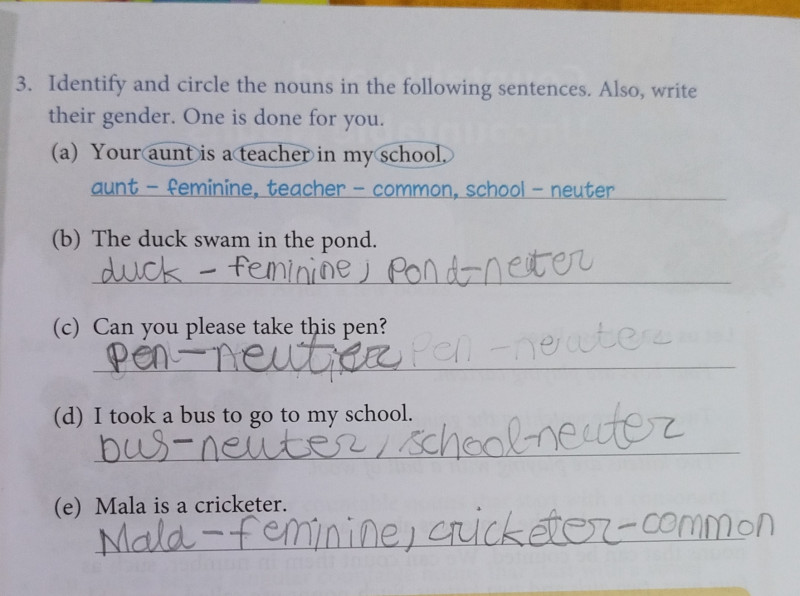 3. Identify and circle the nouns in the following sentences. Also, write
their gender. One is done for you.
(a) Your aunt is a teacher in my school.
aunt – feminine, teacher – common, school – neuter
(b) The duck swam in the pond.
duck – feminine, pond-neuter
(c) Can you please take this pen?
pen-neutier pen - neuter
(d) I took a bus to go to my school.
bus-neuter, school-neuter
(e) Mala is a cricketer.
Mala-feminine, cricketer-common